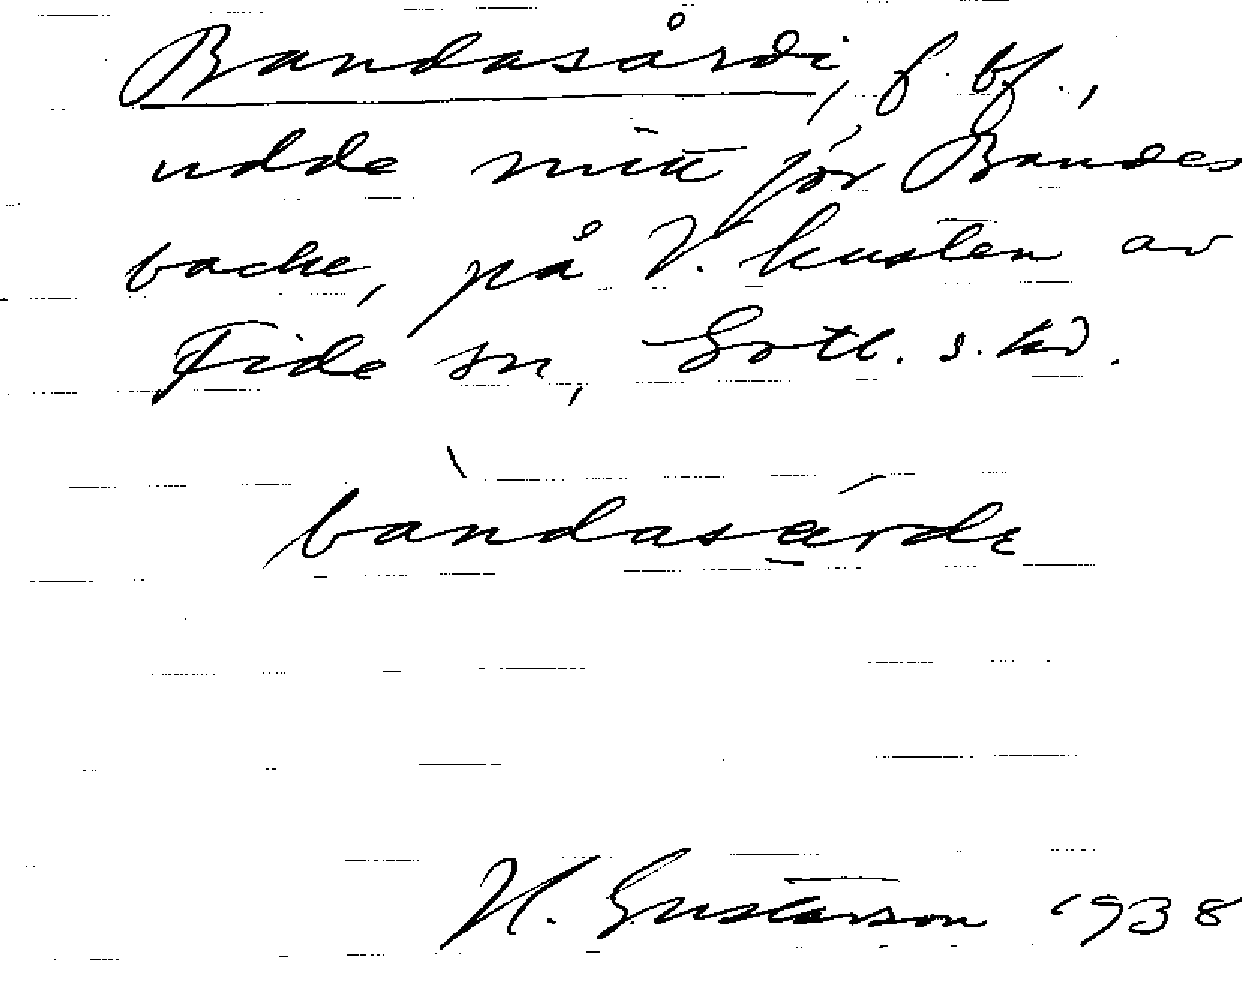 Bandasårdi, f. bf.,
udde mitt för Bandes
backe, på V. kusten av
Fide sn, Gotl. s. hd.
bàndasárde
H. Gustavson 1938